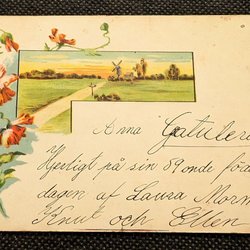 Anna Gatulera
Hjertligt på sin 89onde föd
dagen af Laura Morm
Knut och Ellen